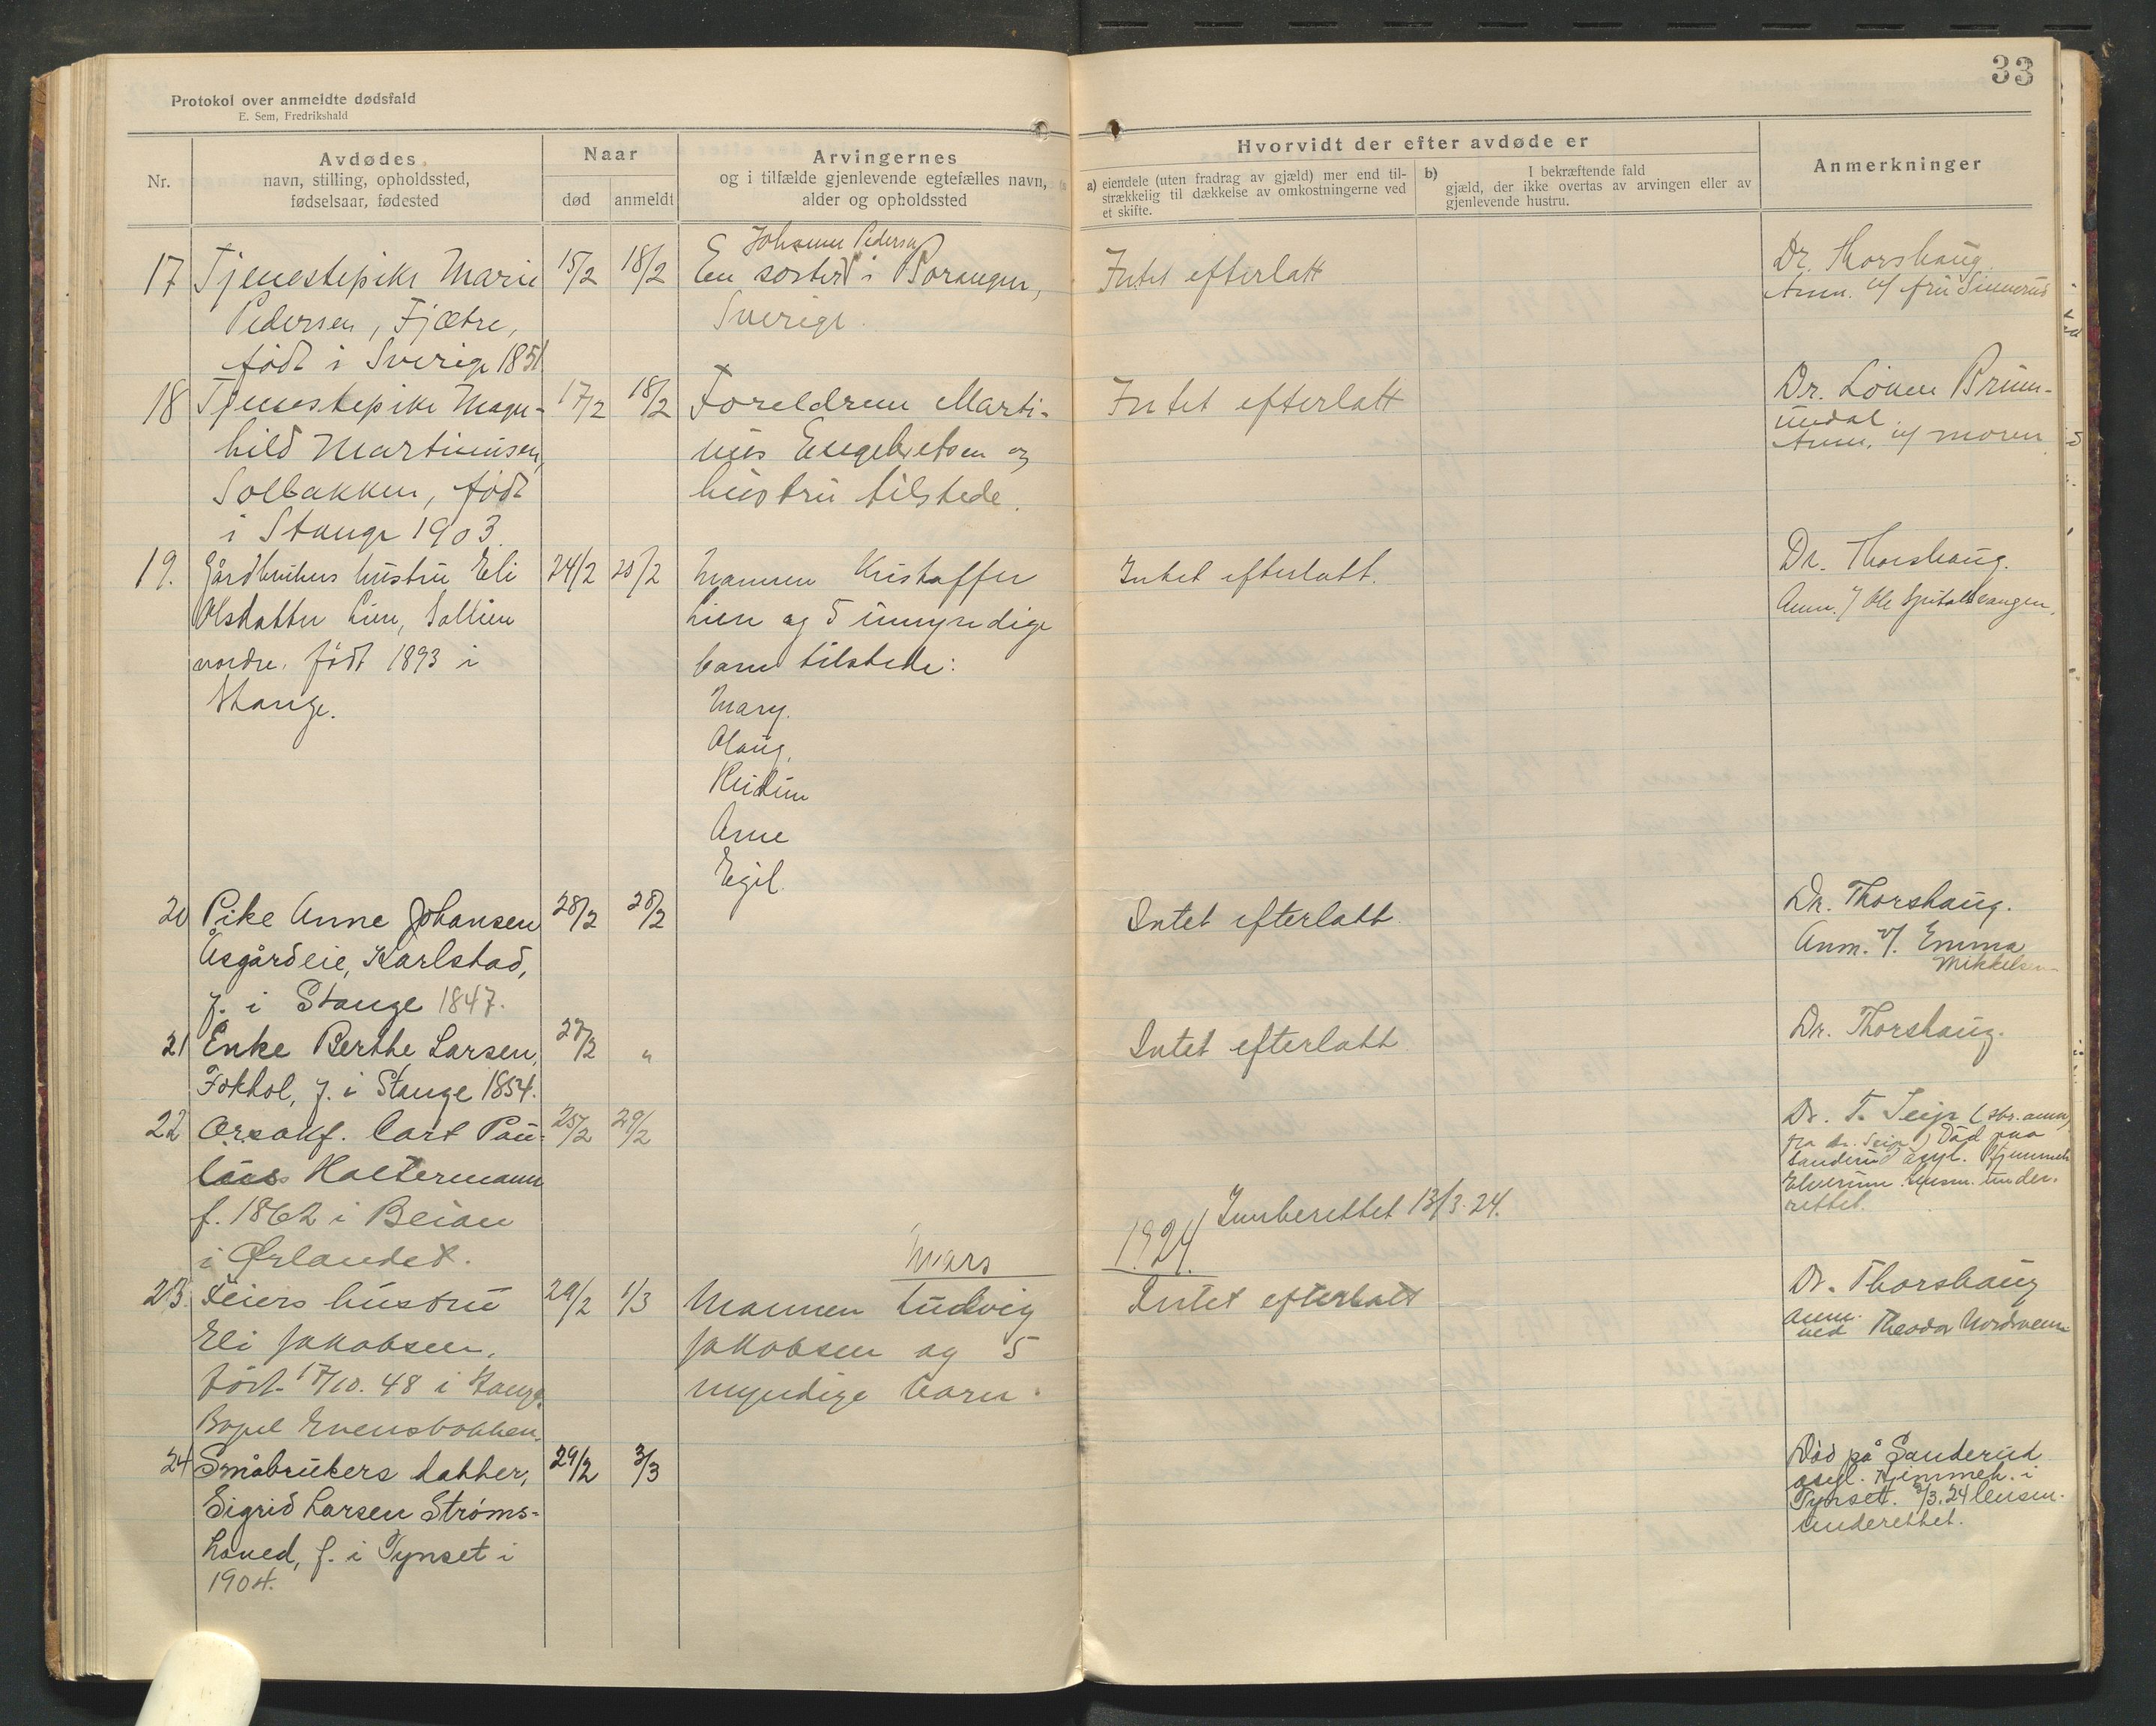 33
Protokol over anmeldte dødsfald
E. Sem, Fredrikshald
Nr.
Avdødes
navn, stilling, opholdssted,
fødselsaar, fødested
Naar
død
anmeldt
Arvingernes
og i tilfælde gjenlevende egtefælles navn,
alder og opholdssted
Hvorvidt der efter avdøde er
a) eiendele (uten fradrag av gjæld) mer end til-
strækkelig til dækkelse av omkostningerne ved
et skifte.
b) I bekræftende fald
gjæld, der ikke overtas av arvingen eller av
gjenlevende hustru.
Anmerkninger
17
Tjenestepike Marie
Pedersen, Fjætre,
født i Sverige 1851
15/2
18/2
Pedersen
En søster i
Sverige.
Intet efterlatt
Dr. Thorshaug.
Anm. v/ fru
18
Tjenestepike Magn-
hild Martinusen,
Solbakken, født
i Stange 1903.
17/2
18/2
Foreldrene Marti-
nus Engebretsen og
hustru tilstede.
Intet efterlatt
Dr. Løken Brum-
undal.
Anm. v/ moren
19.
Gårdbrukers hustru Eli
Olsdatter Lien, Saltlien
nordre. født 1893 i
Stange.
24/2
25/2
Mannen Kristoffer
Lien og 5 umyndige
barn tilstede:
Mary.
Olaug,
Arne
Egil.
Intet efterlatt.
Dr. Thorshaug.
Anm. v/ Ole
20
Pike Anne Johansen
Åsgårdeie, Karlstad,
f. i Stange 1847.
28/2
28/2
Intet efterlatt.
Dr. Thorshaug.
Anm. v/. Emma
Mikkelsen
21
Enke Berthe Larsen,
Fokhol, f. i Stange 1854.
27/2
"
Intet efterlatt
Dr. Thorshaug.
22
Carl Pau-
lus Holtermann
f. 1862 i Beian
i Ørlandet.
25/2
29/2
Innberettet 13/3.24.
Dr. T. Seip
fra dr. Seip) Død paa
Sanderud asyl. Hjemmeh.
Elverum. Lensm. under-
rettet.
Mars
1924.
23
Feiers hustru
Eli Jakobsen,
født 17/10. 48 i Stange.
Bopel Evensbakken.
29/2
1/3
Mannen Ludvig
Jakobsen og 5
myndige barn.
Intet efterlatt
Dr. Thorshaug
anm.
ved Theodor
24
Småbrukers datter,
Sigrid Larsen Strøms-
hoved, f. i Tynset i
1904.
29/2
3/3
Død på Sanderud
asyl. Hjemmeh. i
Tynset. 3/3.24 lensm.
underettet.